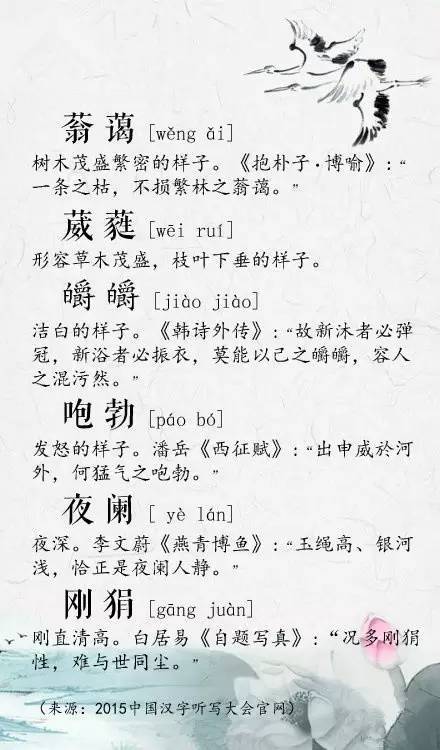 蓊蔼 [wěng ǎi]
树木茂盛繁密的样子。《抱朴子·博喻》:“
一条之枯，不损繁林之蓊蔼。”
葳蕤 [wēi ruí]
形容草木茂盛，枝叶下垂的样子。
皭皭 [jiào jiào]
洁白的样子。《韩诗外传》:“故新沐者必弹
冠，新浴者必振衣，莫能以己之皭皭，容人
之混污然。”
咆勃 [páo bó]
发怒的样子。潘岳《西征赋》:“出申威於河
外，何猛气之咆勃。”
夜阑 [ yè lán]
夜深。李文蔚《燕青博鱼》:“玉绳高、银河
浅，恰正是夜阑人静。”
刚狷 [gāng juàn]
刚直清高。白居易《自题写真》:“况多刚狷
性，难与世同尘。”
（来源：2015中国汉字听写大会官网）